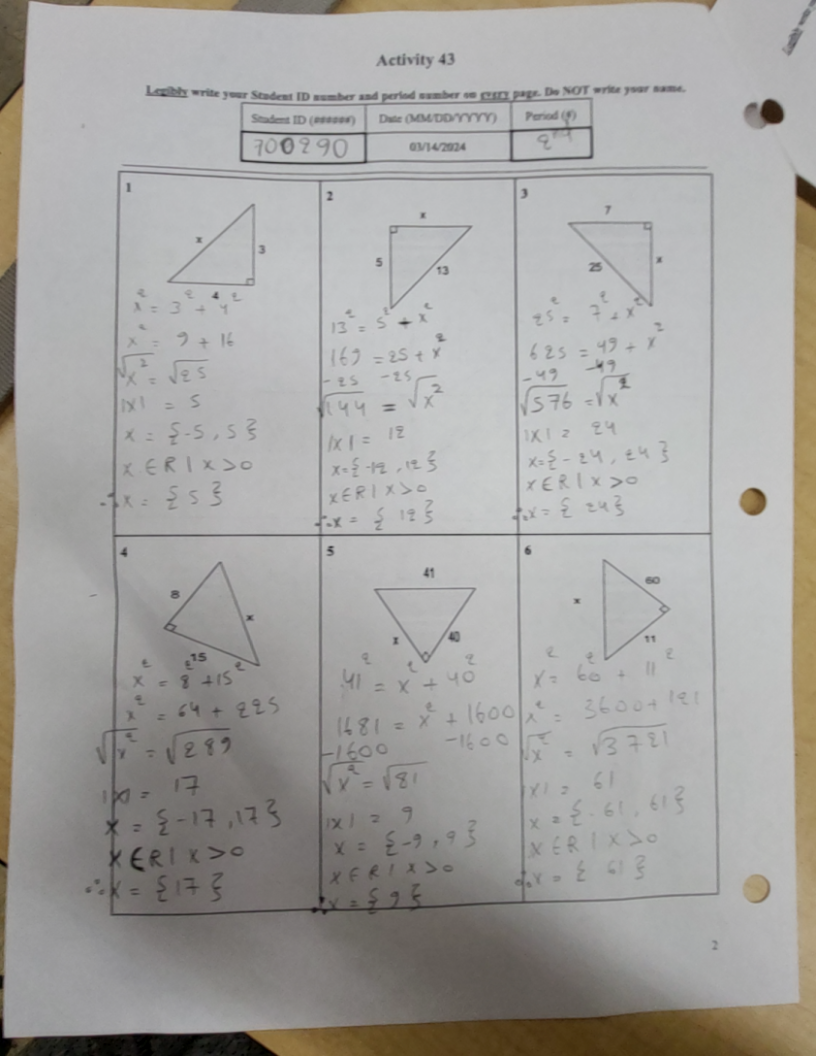 Activity 43
Legibly write your Student ID number and period number on every page. Do NOT write your name.
Student ID (######) Date (MM/DD/YYYY) Period (#)
700290 03/14/2024 2nd
1
x
3
4
x² = 3² + 4²
x² = 9 + 16
√x² = √25
|x| = 5
x = {-5, 5}
x ∈ R | x > 0
∴ x = {5}
2
x
5
13
13² = 5² + x²
169 = 25 + x²
-25 -25
√144 = √x²
|x| = 12
x = {-12, 12}
x ∈ R | x > 0
∴ x = {12}
3
7
25
x
25² = 7² + x²
625 = 49 + x²
-49 -49
√576 = √x²
|x| = 24
x = {-24, 24}
x ∈ R | x > 0
∴ x = {24}
4
8
x
15
x² = 8² + 15²
x² = 64 + 225
√x² = √289
|x| = 17
x = {-17, 17}
x ∈ R | x > 0
∴ x = {17}
5
41
x
40
41² = x² + 40²
1681 = x² + 1600
-1600 -1600
√x² = √81
|x| = 9
x = {-9, 9}
x ∈ R | x > 0
∴ x = {9}
6
60
x
11
x² = 60² + 11²
x² = 3600 + 121
√x² = √3721
|x| = 61
x = {-61, 61}
x ∈ R | x > 0
∴ x = {61}
2